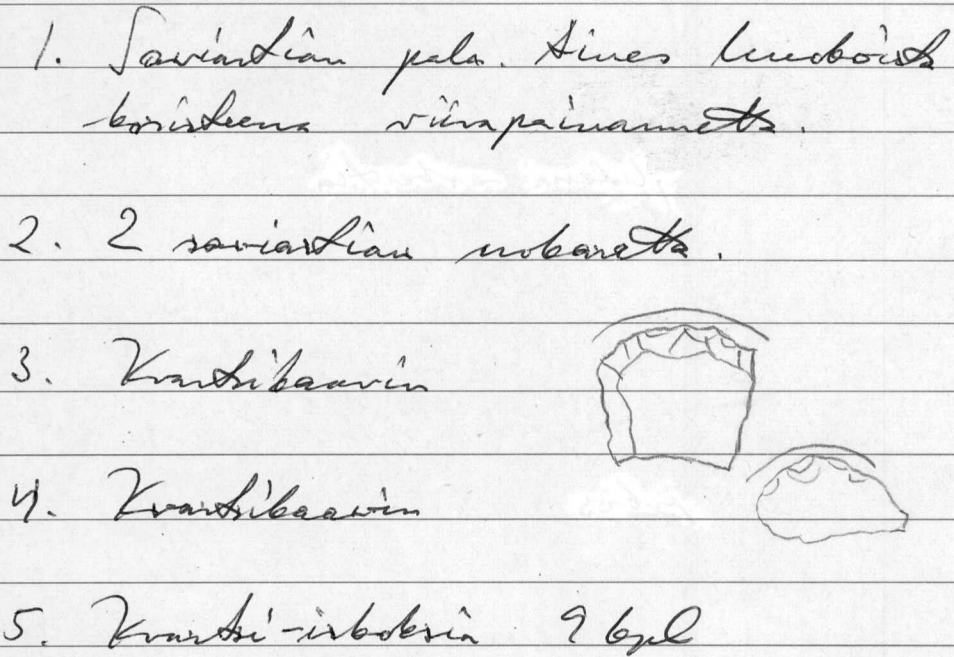 1. Saviastian pala. Aines huokoista
koristeena viirupainannetta.
2. 2 saviastian murusetta.
3. Kvartsikaavin
4. Kvartsikaavin
5. Kvartsi-iskoksia 9 kpl